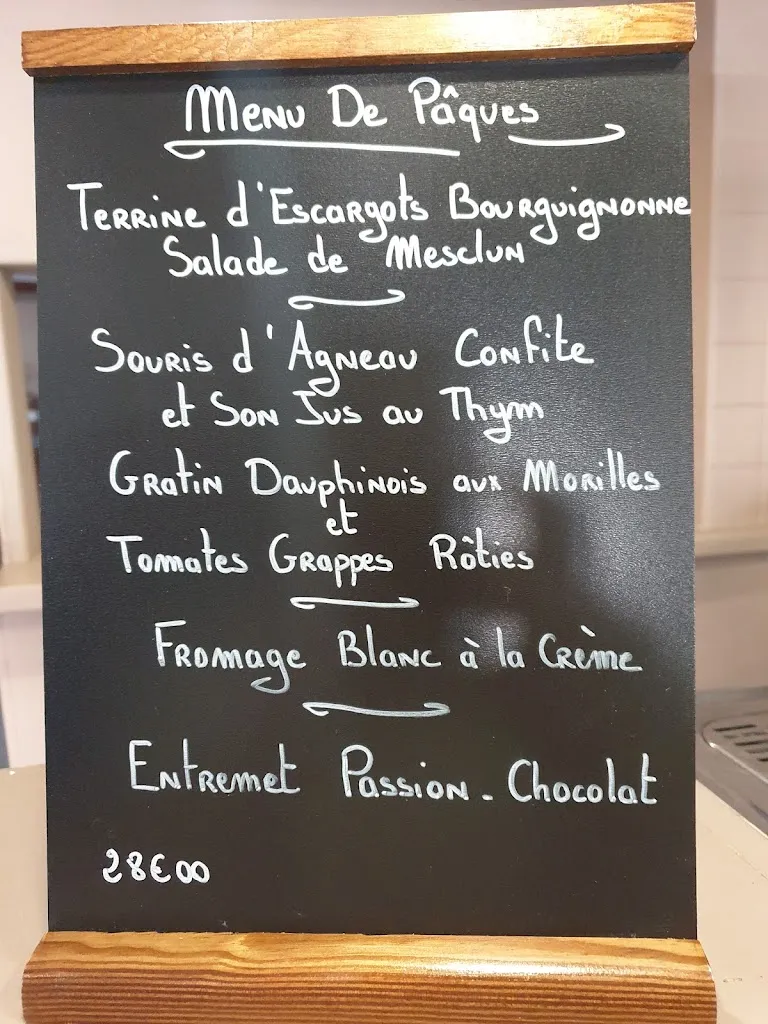 Menu De Pâques
Terrine d'Escargots Bourguignonne
Salade de Mesclun
Souris d'Agneau Confite
et Son Jus au Thym
Gratin Dauphinois aux Morilles
et
Tomates Grappes Rôties
Fromage Blanc à la Crème
Entremet Passion - Chocolat
28€00